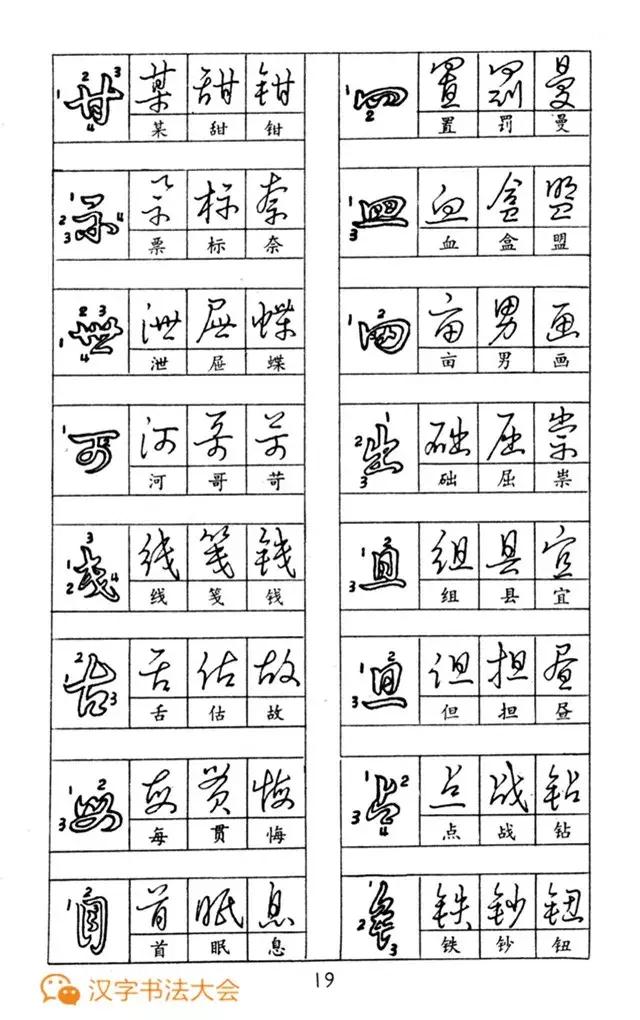 甘 某 甜 钳
某 甜 钳
示 票 标 奈
票 标 奈
世 泄 屉 蝶
泄 屉 蝶
可 河 哥 苛
河 哥 苛
戋 线 笺 钱
线 笺 钱
古 舌 估 故
舌 估 故
每 贯 悔
每 贯 悔
首 眠 息
首 眠 息
罒 置 罚 曼
置 罚 曼
皿 血 盒 盟
血 盒 盟
田 亩 男 画
亩 男 画
出 础 屈 祟
础 屈 祟
且 组 县 宜
组 县 宜
旦 但 担 昼
但 担 昼
占 点 战 钻
点 战 钻
钅 铁 钞 钮
铁 钞 钮
19
汉字书法大会